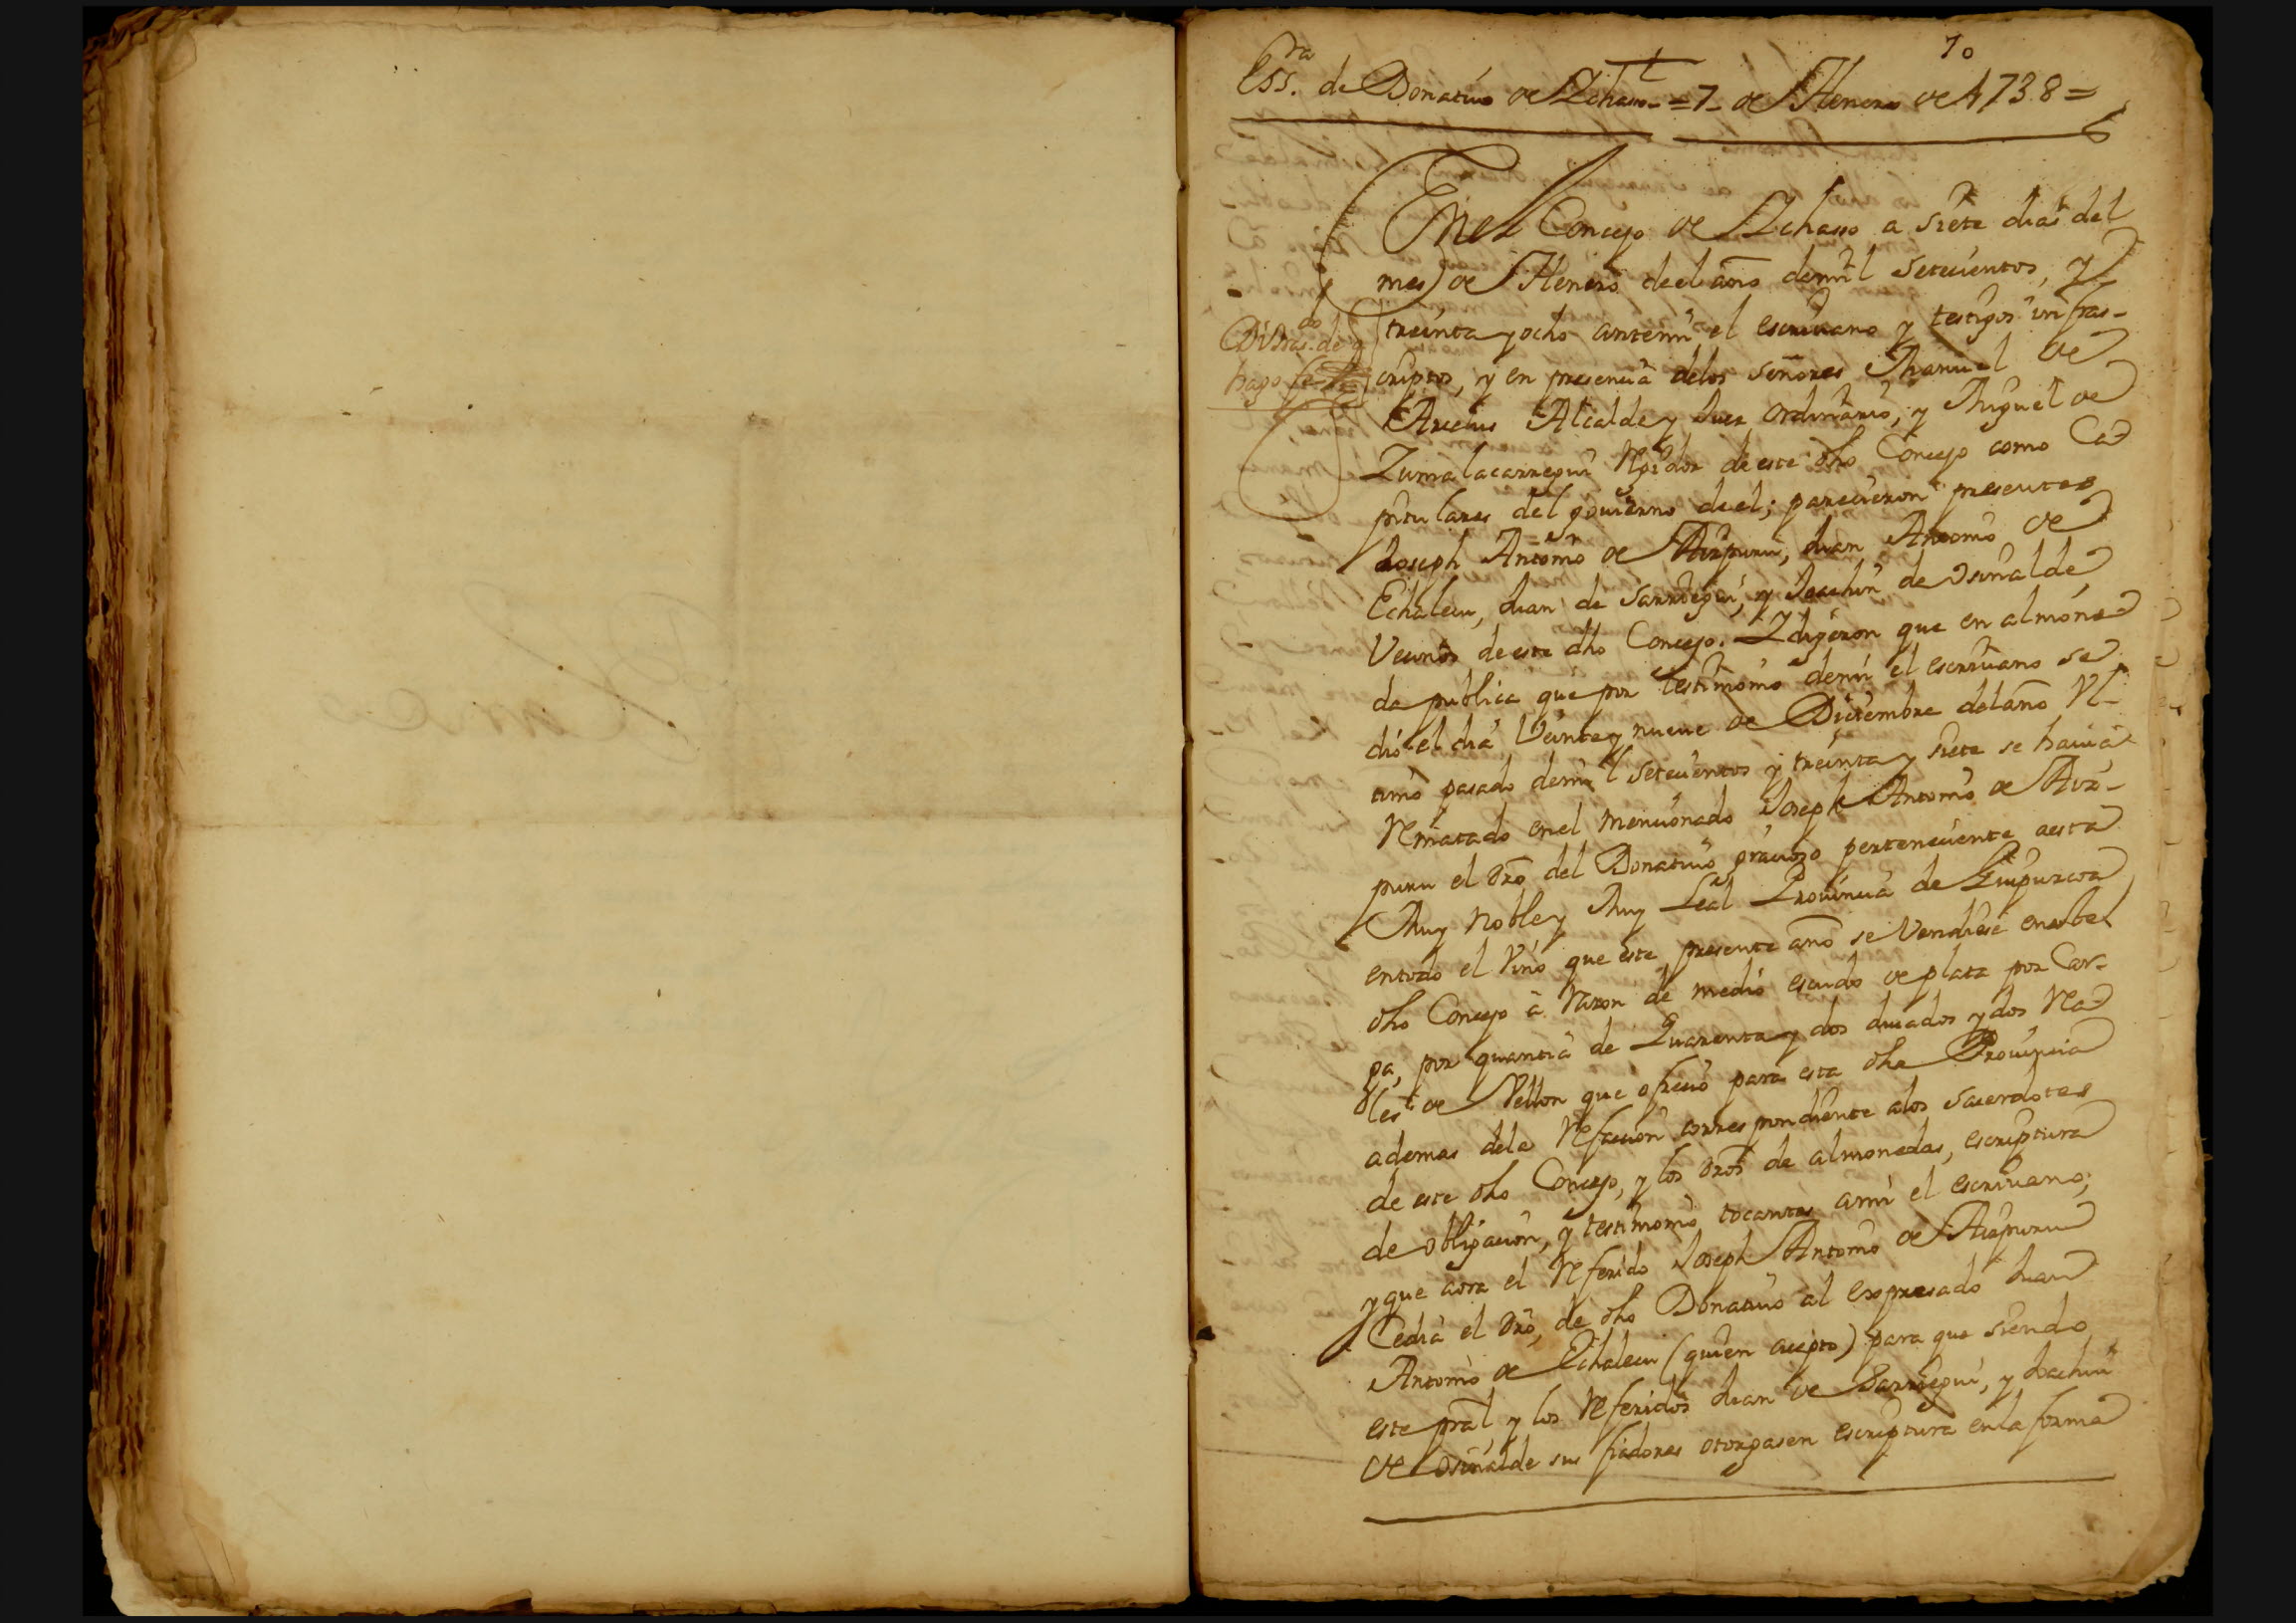 10
Ess.ra de Donativo de Ychasso = 7 de Henero de 1738 =
En el Concejo de Ychasso a siete dias del
mes de Henero de el año de mil setecientos, y
treinta y ocho ante mi el escrivano y testigos infras-
criptos, y en presencia de los señores Manuel de
Alcalde y Juez ordinario, y Miguel de
Zumalacarregui Rexidor de este dho Concejo como Ca
pitulares del govierno de el; parecieron presentes
Joseph Antonio de Aizpuru, Juan Antonio de
Echalecu, Juan de Sarriegui, y Joachin de Osinalde
Vecinos de este dho Concejo. Y dijeron que en almone
da publica que por testimonio de mi el escrivano se
dió el dia Veinte y nueve de Diciembre del año Vl-
timo pasado de mil setecientos y treinta y siete se havia
Rematado en el mencionado Joseph Antonio de Aiz-
puru el dro del Donativo gracioso perteneciente a esta
Muy Noble y Muy Leal Provincia de Guipuzcoa
en todo el Vino que este presente año se Vendiese en este
dho Concejo à Razon de medio escudo de plata por Car-
ga, por quantia de Quarenta y dos ducados y dos Rea
les de Vellon que ofreció para esta dha Provincia
ademas dela Refaccion correspondiente alos Sacerdotes
de este dho Concejo, y los dros de almonedas, escriptura
de obligacion, y testimonio tocantes a mi el escrivano;
y que aora el Referido Joseph Antonio de Aizpuru
Cedia el dro, de dho Donativo al expresado Juan
Antonio de Echalecu (quien acepto) para que siendo
este pral y los Referidos Juan de Sarriegui, y Joachin
de Osinalde sus fiadores otorgasen escriptura en la forma